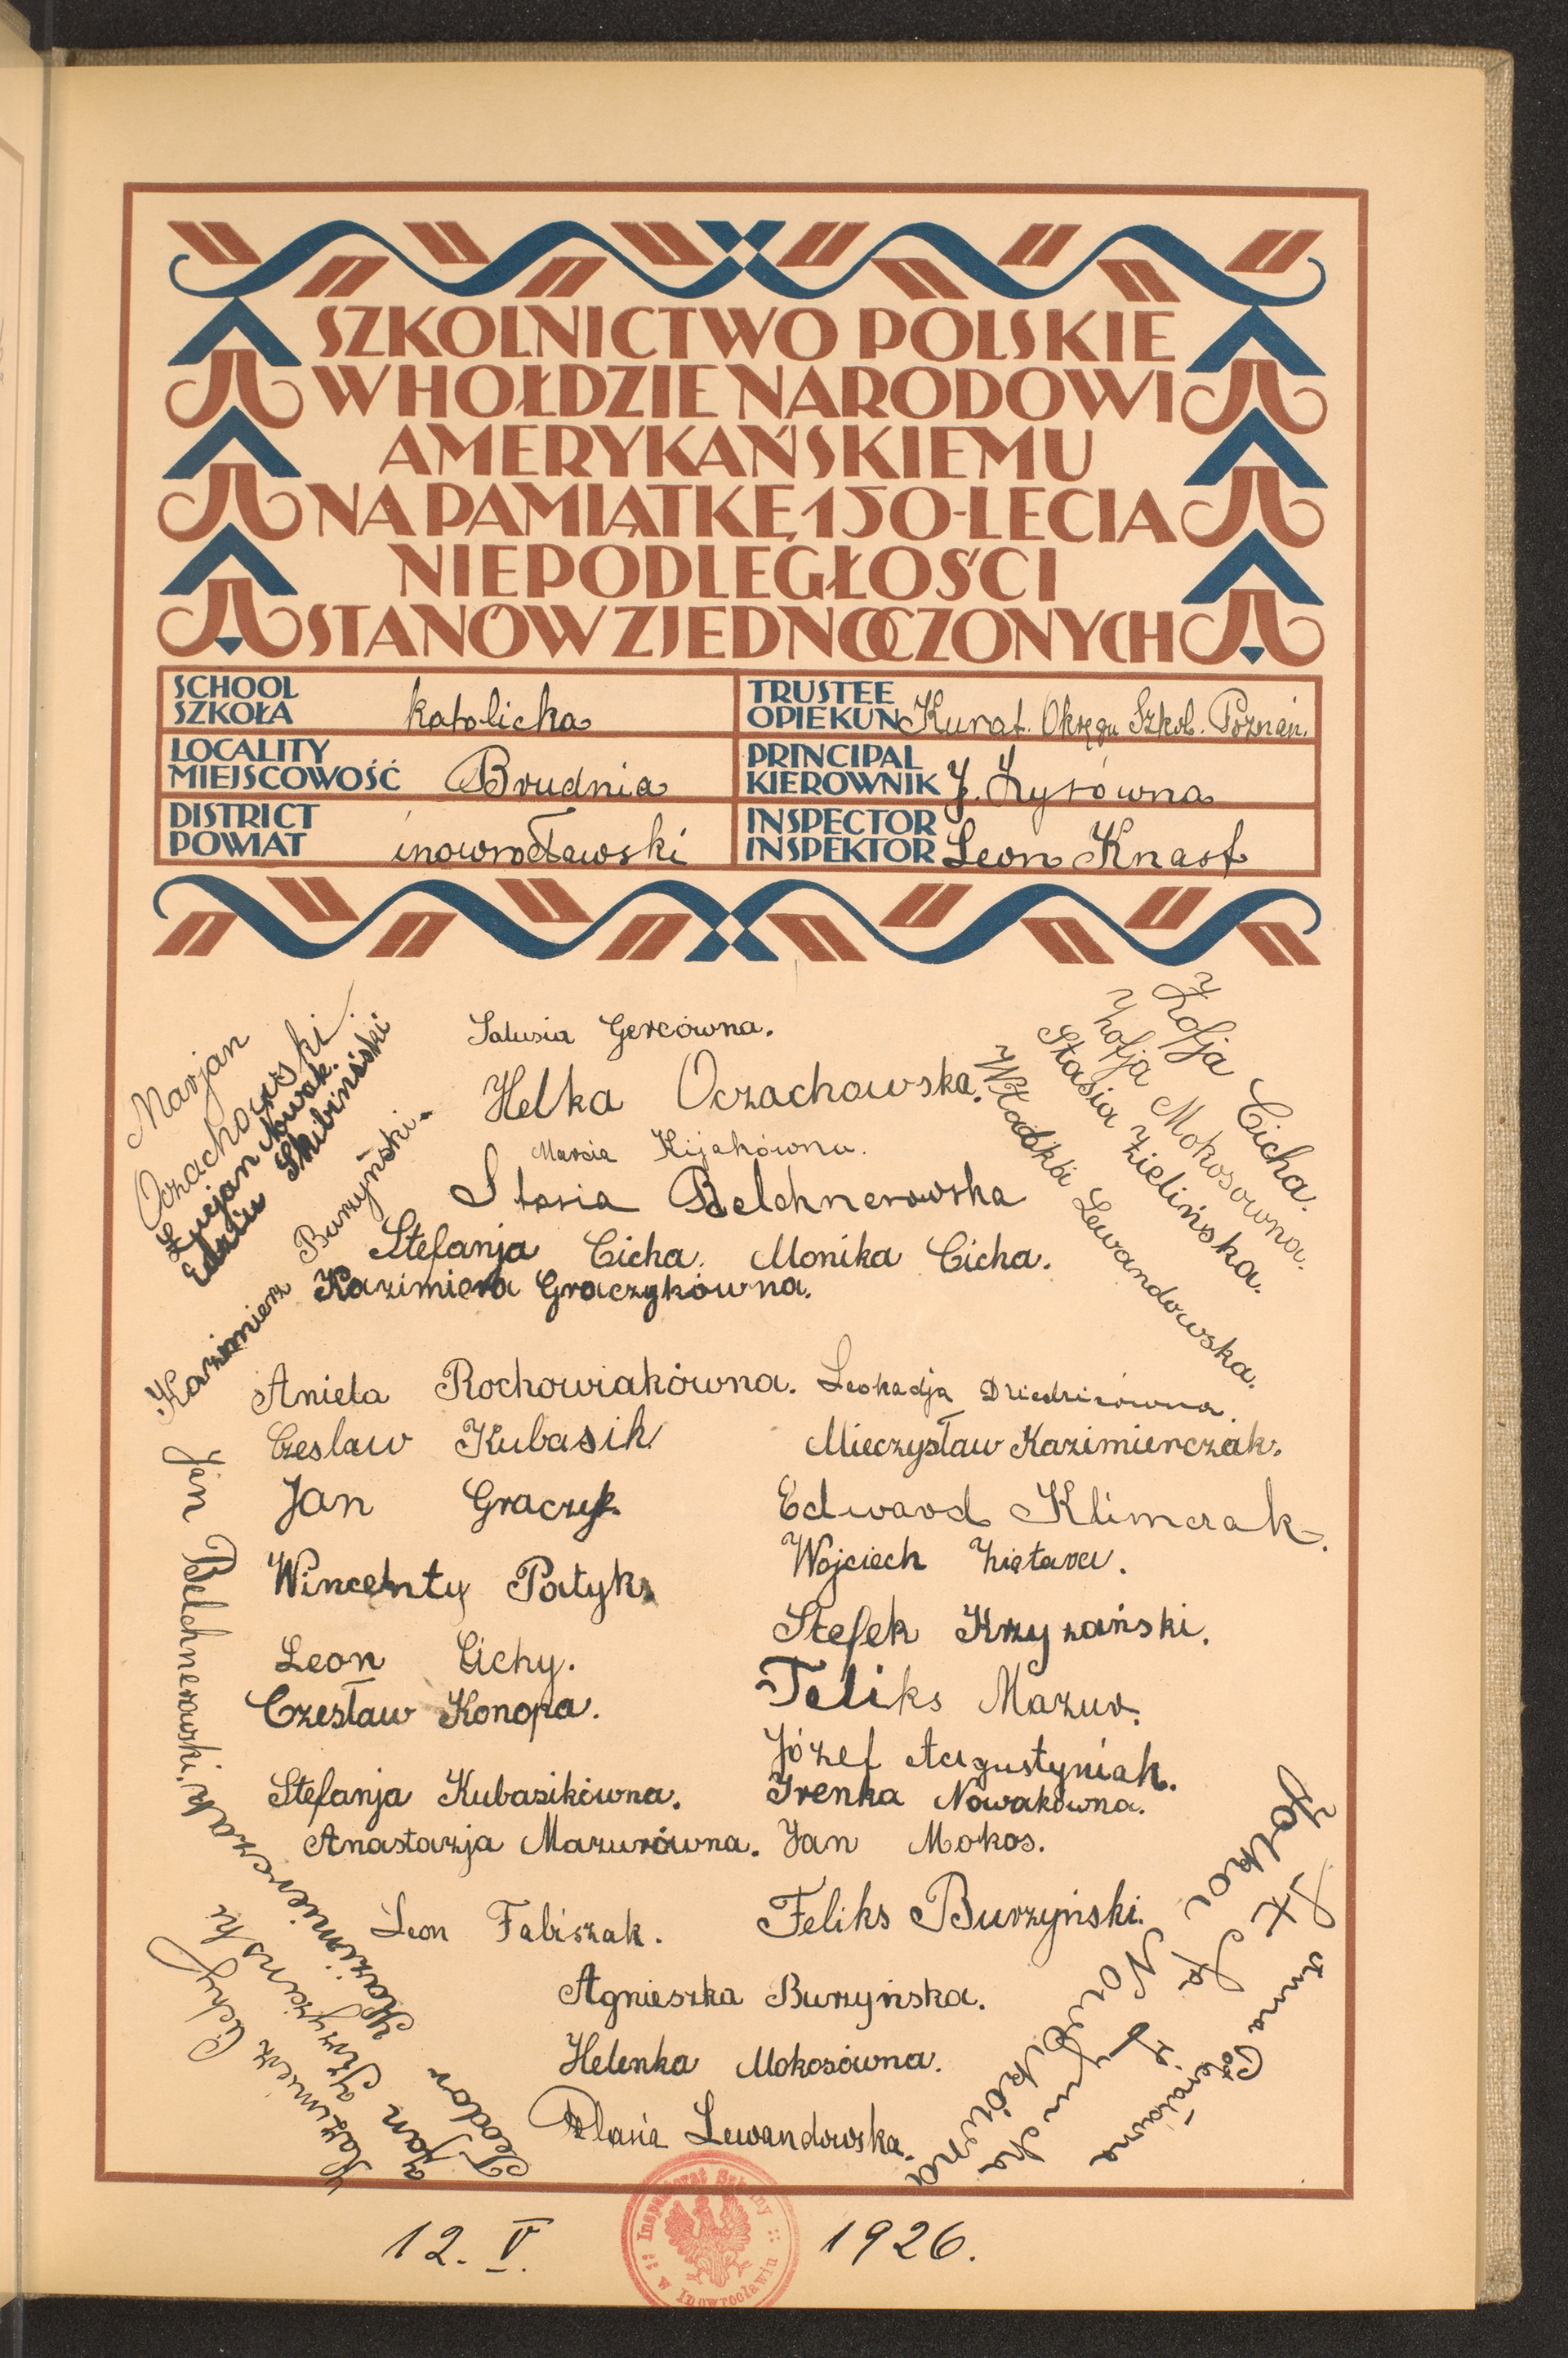 SZKOLNICTWO POLSKIE
W HOŁDZIE NARODOWI
AMERYKAŃSKIEMU
NA PAMIĄTKĘ 150-LECIA
NIEPODLEGŁOŚCI
STANÓW ZJEDNOCZONYCH
SCHOOL
SZKOŁA katolicka
TRUSTEE
OPIEKUN Kurat. Okręgu Szkol. Poznań.
LOCALITY
MIEJSCOWOŚĆ Brudnia
PRINCIPAL
KIEROWNIK J. Łysówna
DISTRICT
POWIAT inowrocławski
INSPECTOR
INSPEKTOR Leon Knast
Marjan
Oczachowski.
Lucjan Nowak.
Edziu Skibiński
Kazimierz Burzyński.
Salusia Gercówna.
Helka Oczachowska.
Marsia Kijakówna.
Stasia Belchnerowska
Stefanja Cicha. Monika Cicha.
Kazimiera Graczykówna.
Zofja Cicha.
Zofja Mokosówna.
Stasia Zielińska.
Lewandowska.
Aniela Rochowiakówna. Leokadja Dziedzicówna.
Czeslaw Kubasik
Mieczysław Kazimierczak.
Jan Graczyk.
Edward Klimczak.
Wincenty Patyk.
Wojciech Ziętara.
Stefek Krzyżański.
Leon Cichy.
Feliks Mazur.
Czesław Konopa.
Józef Augustyniak.
Stefanja Kubasikówna.
Irenka Nowakówna.
Anastazja Mazurówna. Jan Mokos.
Leon Fabiszak.
Feliks Burzyński.
Agnieszka Burzyńska.
Helenka Mokosówna.
Pelasia Lewandowska.
Jan Belchnerowski.
Teodor Kazimierczak
Jan Krzyżański
Kazimierz Cichy
Nowakówna
Anna
12. V. 1926.
Inspektorat Szkolny
w Inowrocławiu